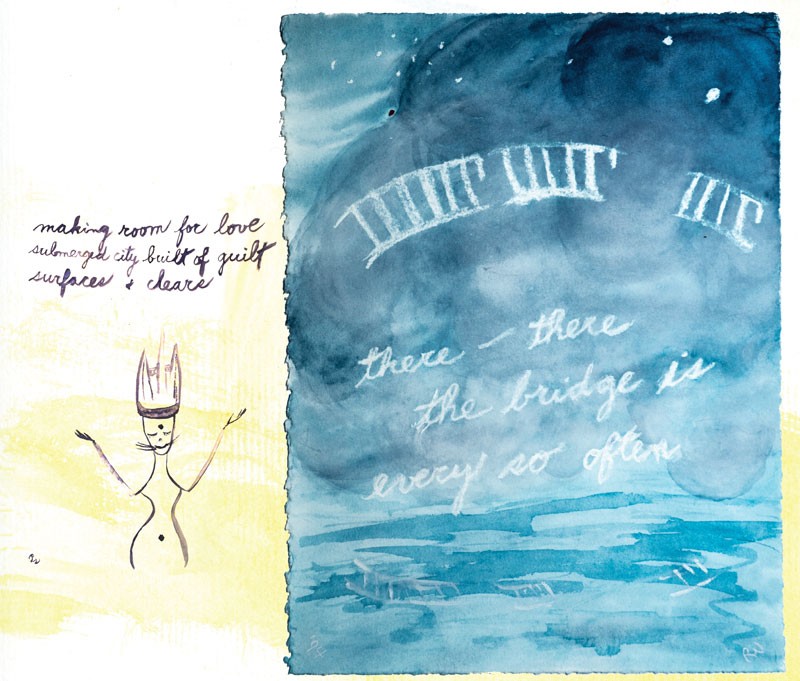 making room for love
submerged city built of guilt
surfaces & clears
there – there
the bridge is
every so often